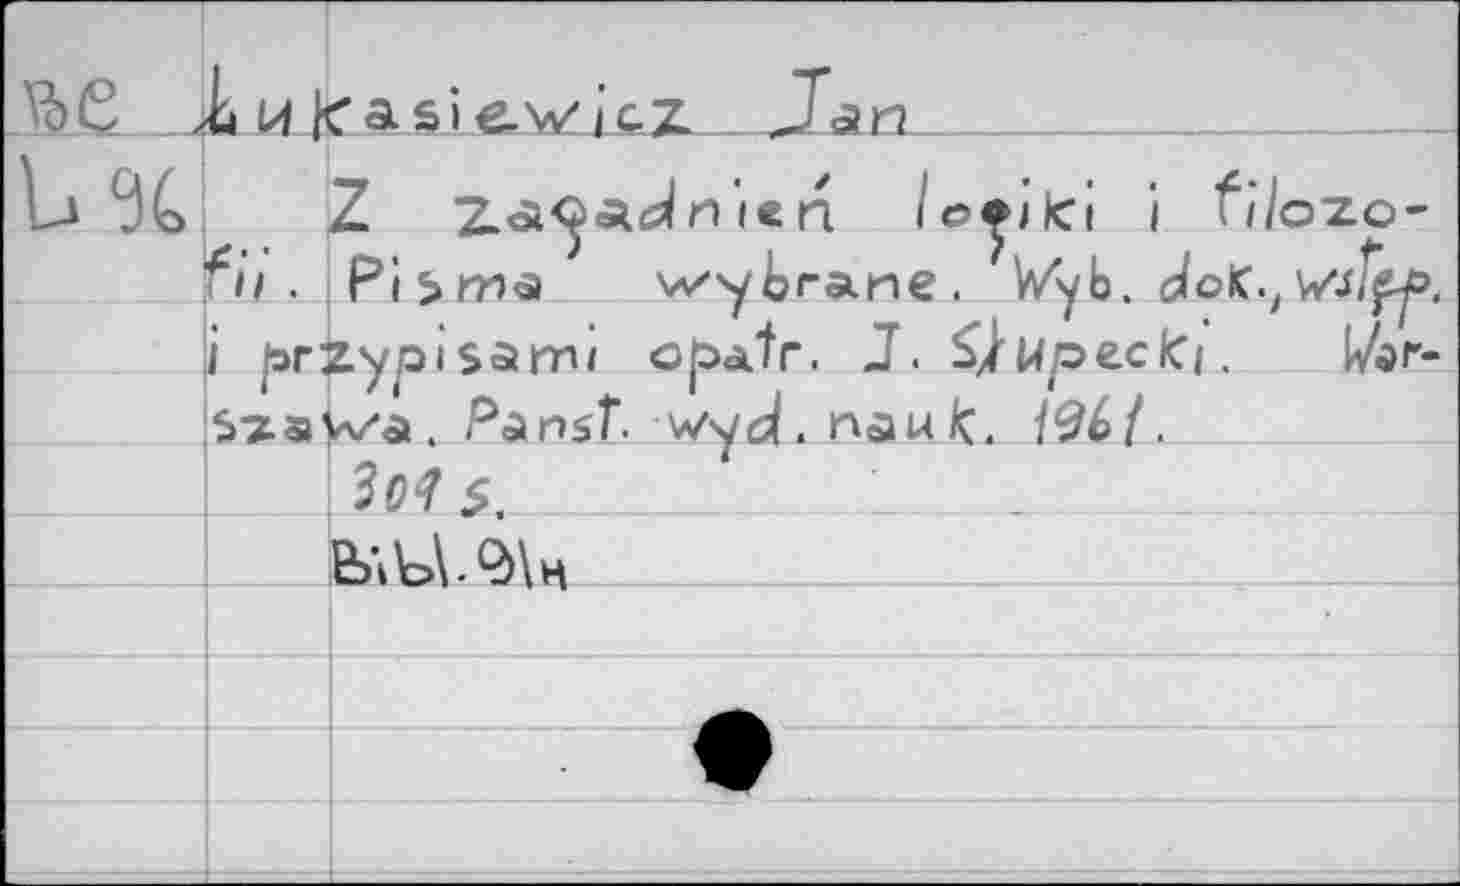 Be Łukasiewicz Jan
L96 Z zagadnień logiki i filozo-
fii. Pisma wybrane. Wyb. dok., wstęp.
i przypisami opatr. J. Słupecki. War-
szawa. Panst. wyd. nauk. 1961.
301 s.
Bibl. 91н